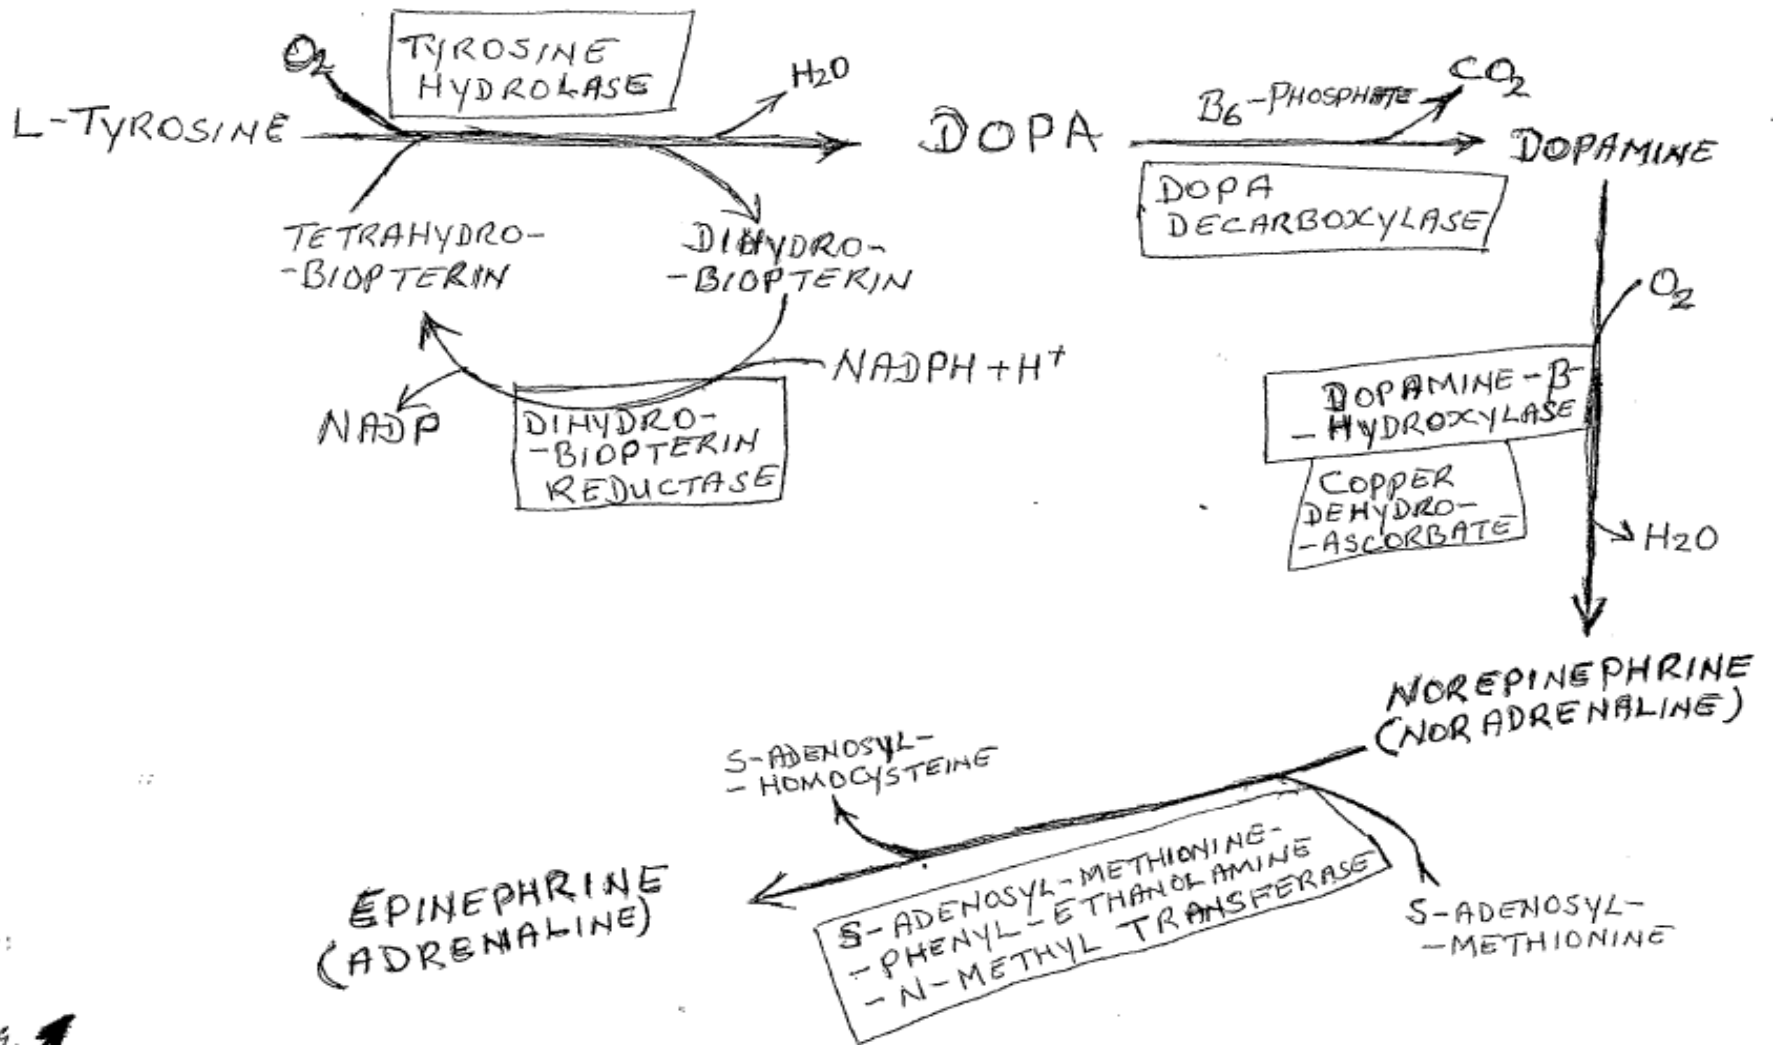 O₂
TYROSINE
HYDROLASE
H₂O
L-TYROSINE
DOPA
B₆-PHOSPHATE
CO₂
DOPAMINE
DOPA
DECARBOXYLASE
TETRAHYDRO-
-BIOPTERIN
DIHYDRO-
-BIOPTERIN
NADPH + H⁺
NADP
DIHYDRO-
-BIOPTERIN
REDUCTASE
O₂
DOPAMINE-β-
-HYDROXYLASE
COPPER
DEHYDRO-
-ASCORBATE
H₂O
NOREPINEPHRINE
(NORADRENALINE)
S-ADENOSYL-
-HOMOCYSTEINE
S-ADENOSYL-METHIONINE-
-PHENYL-ETHANOLAMINE
-N-METHYL TRANSFERASE
S-ADENOSYL-
-METHIONINE
EPINEPHRINE
(ADRENALINE)